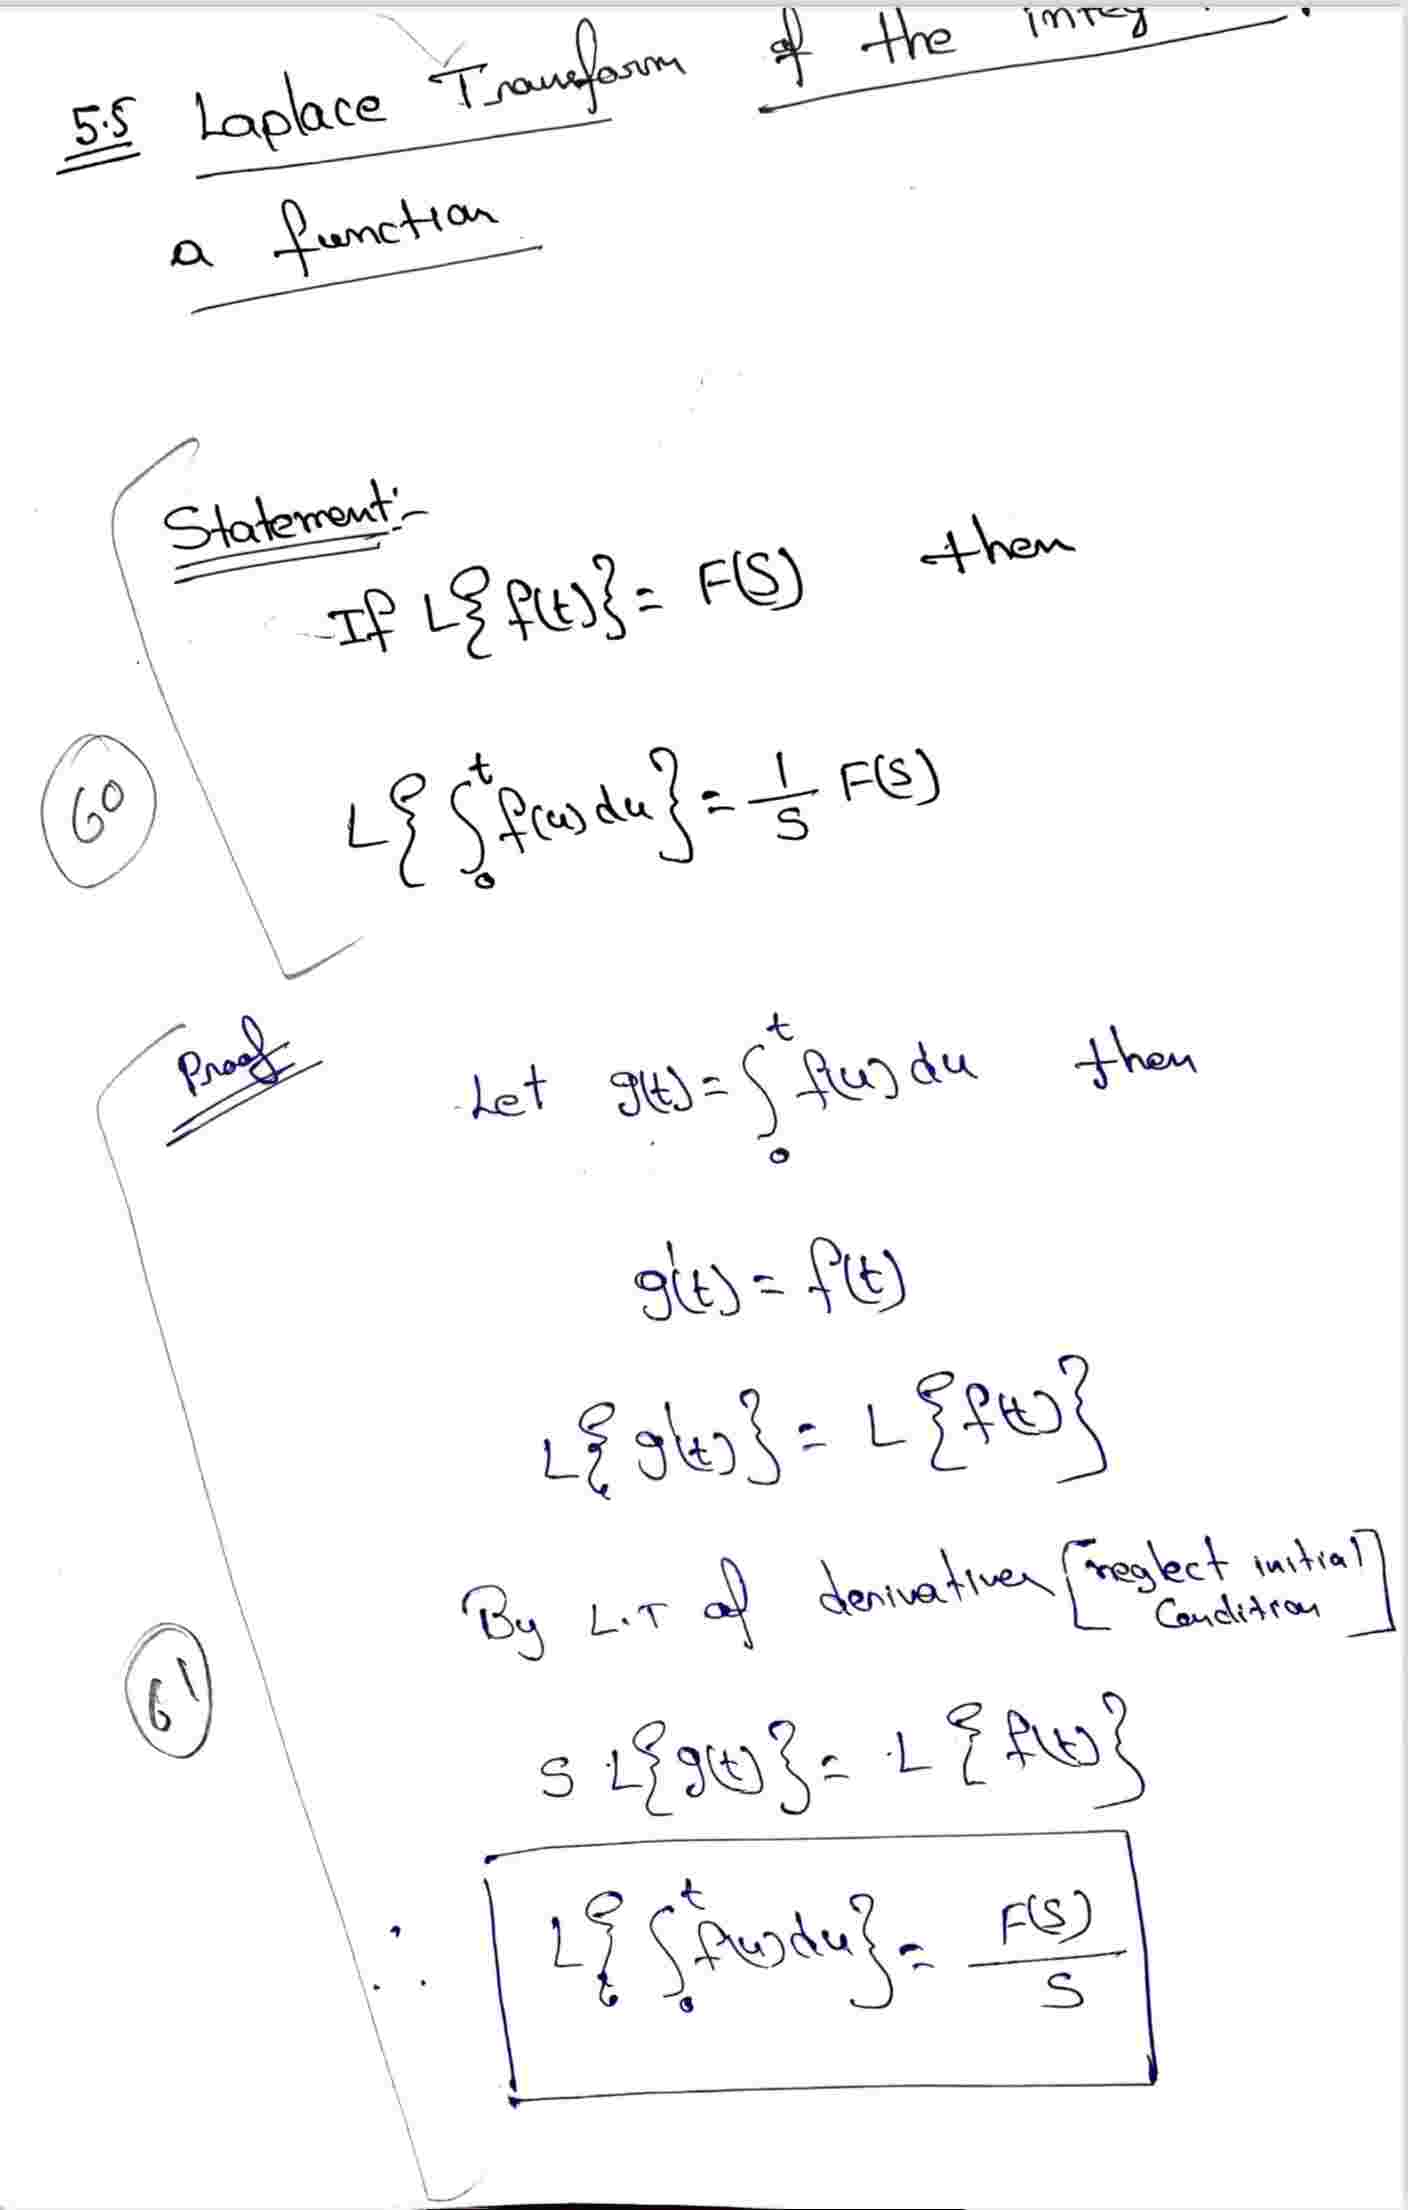 5.5 Laplace Transform of the
a function
Statement:-
If L{f(t)} = F(S) then
60
L{∫₀ᵗ f(u) du} = 1/S F(S)
Proof
Let g(t) = ∫₀ᵗ f(u) du then
g'(t) = f(t)
L{g'(t)} = L{f(t)}
By L.T of derivatives [neglect initial
Condition]
61
S L{g(t)} = L{f(t)}
∴ L{∫₀ᵗ f(u) du} = F(S)/S